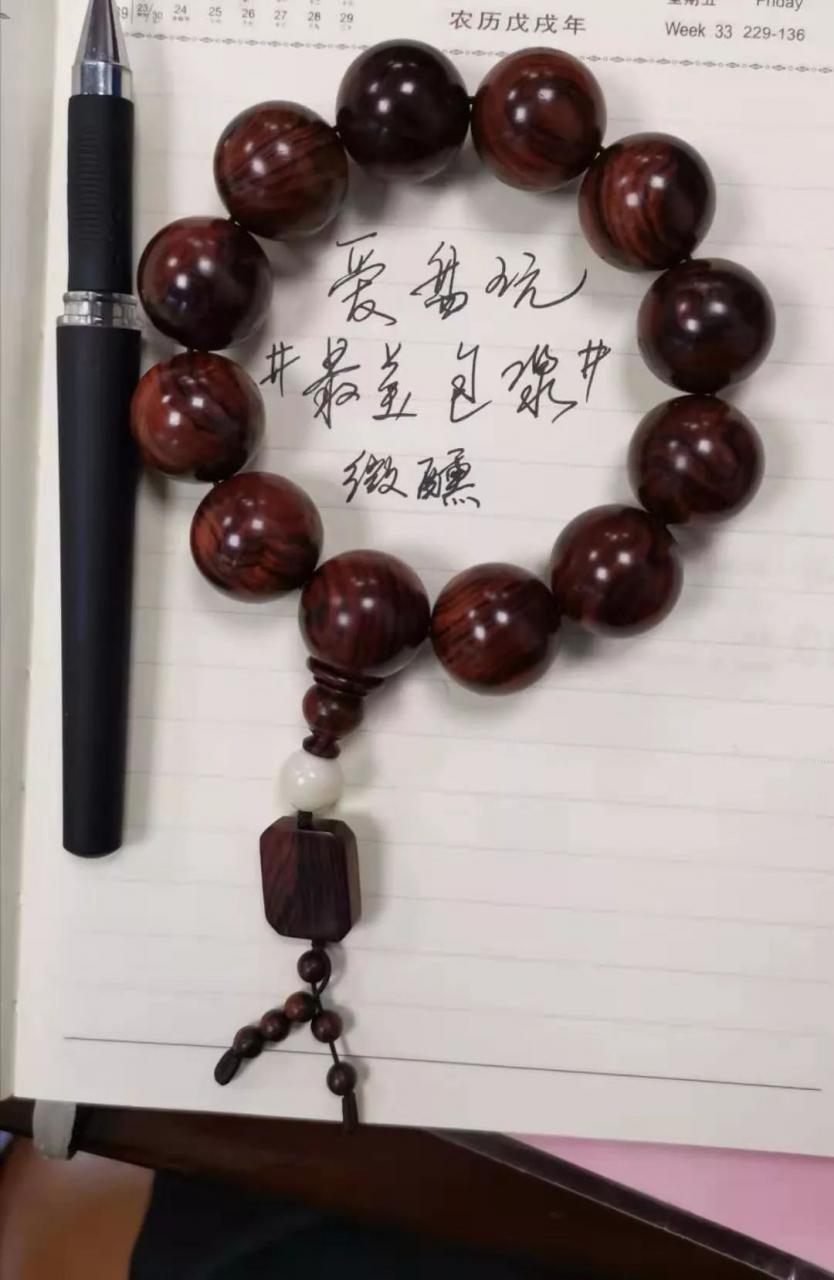 23/30 24 25 26 27 28 29
农历戊戌年
Friday
Week 33 229-136
爱盘玩
#最美包浆#
微醺